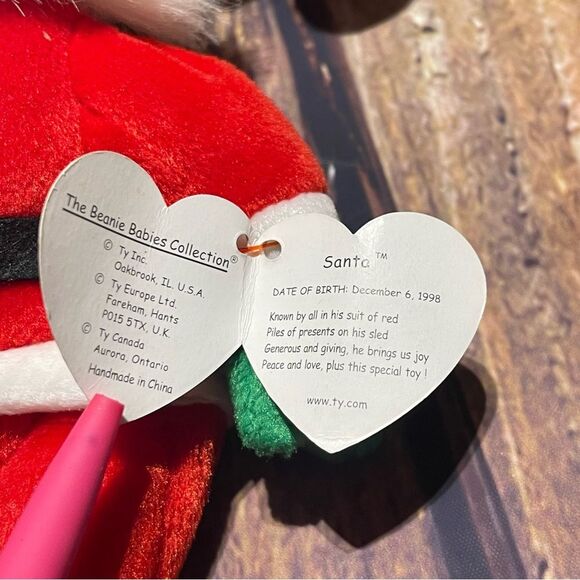 The Beanie Babies Collection®
© Ty Inc.
Oakbrook, IL. U.S.A.
© Ty Europe Ltd.
Fareham, Hants
PO15 5TX, U.K.
© Ty Canada
Aurora, Ontario
Handmade in China
Santa ™
DATE OF BIRTH: December 6, 1998
Known by all in his suit of red
Piles of presents on his sled
Generous and giving, he brings us joy
Peace and love, plus this special toy !
www.ty.com